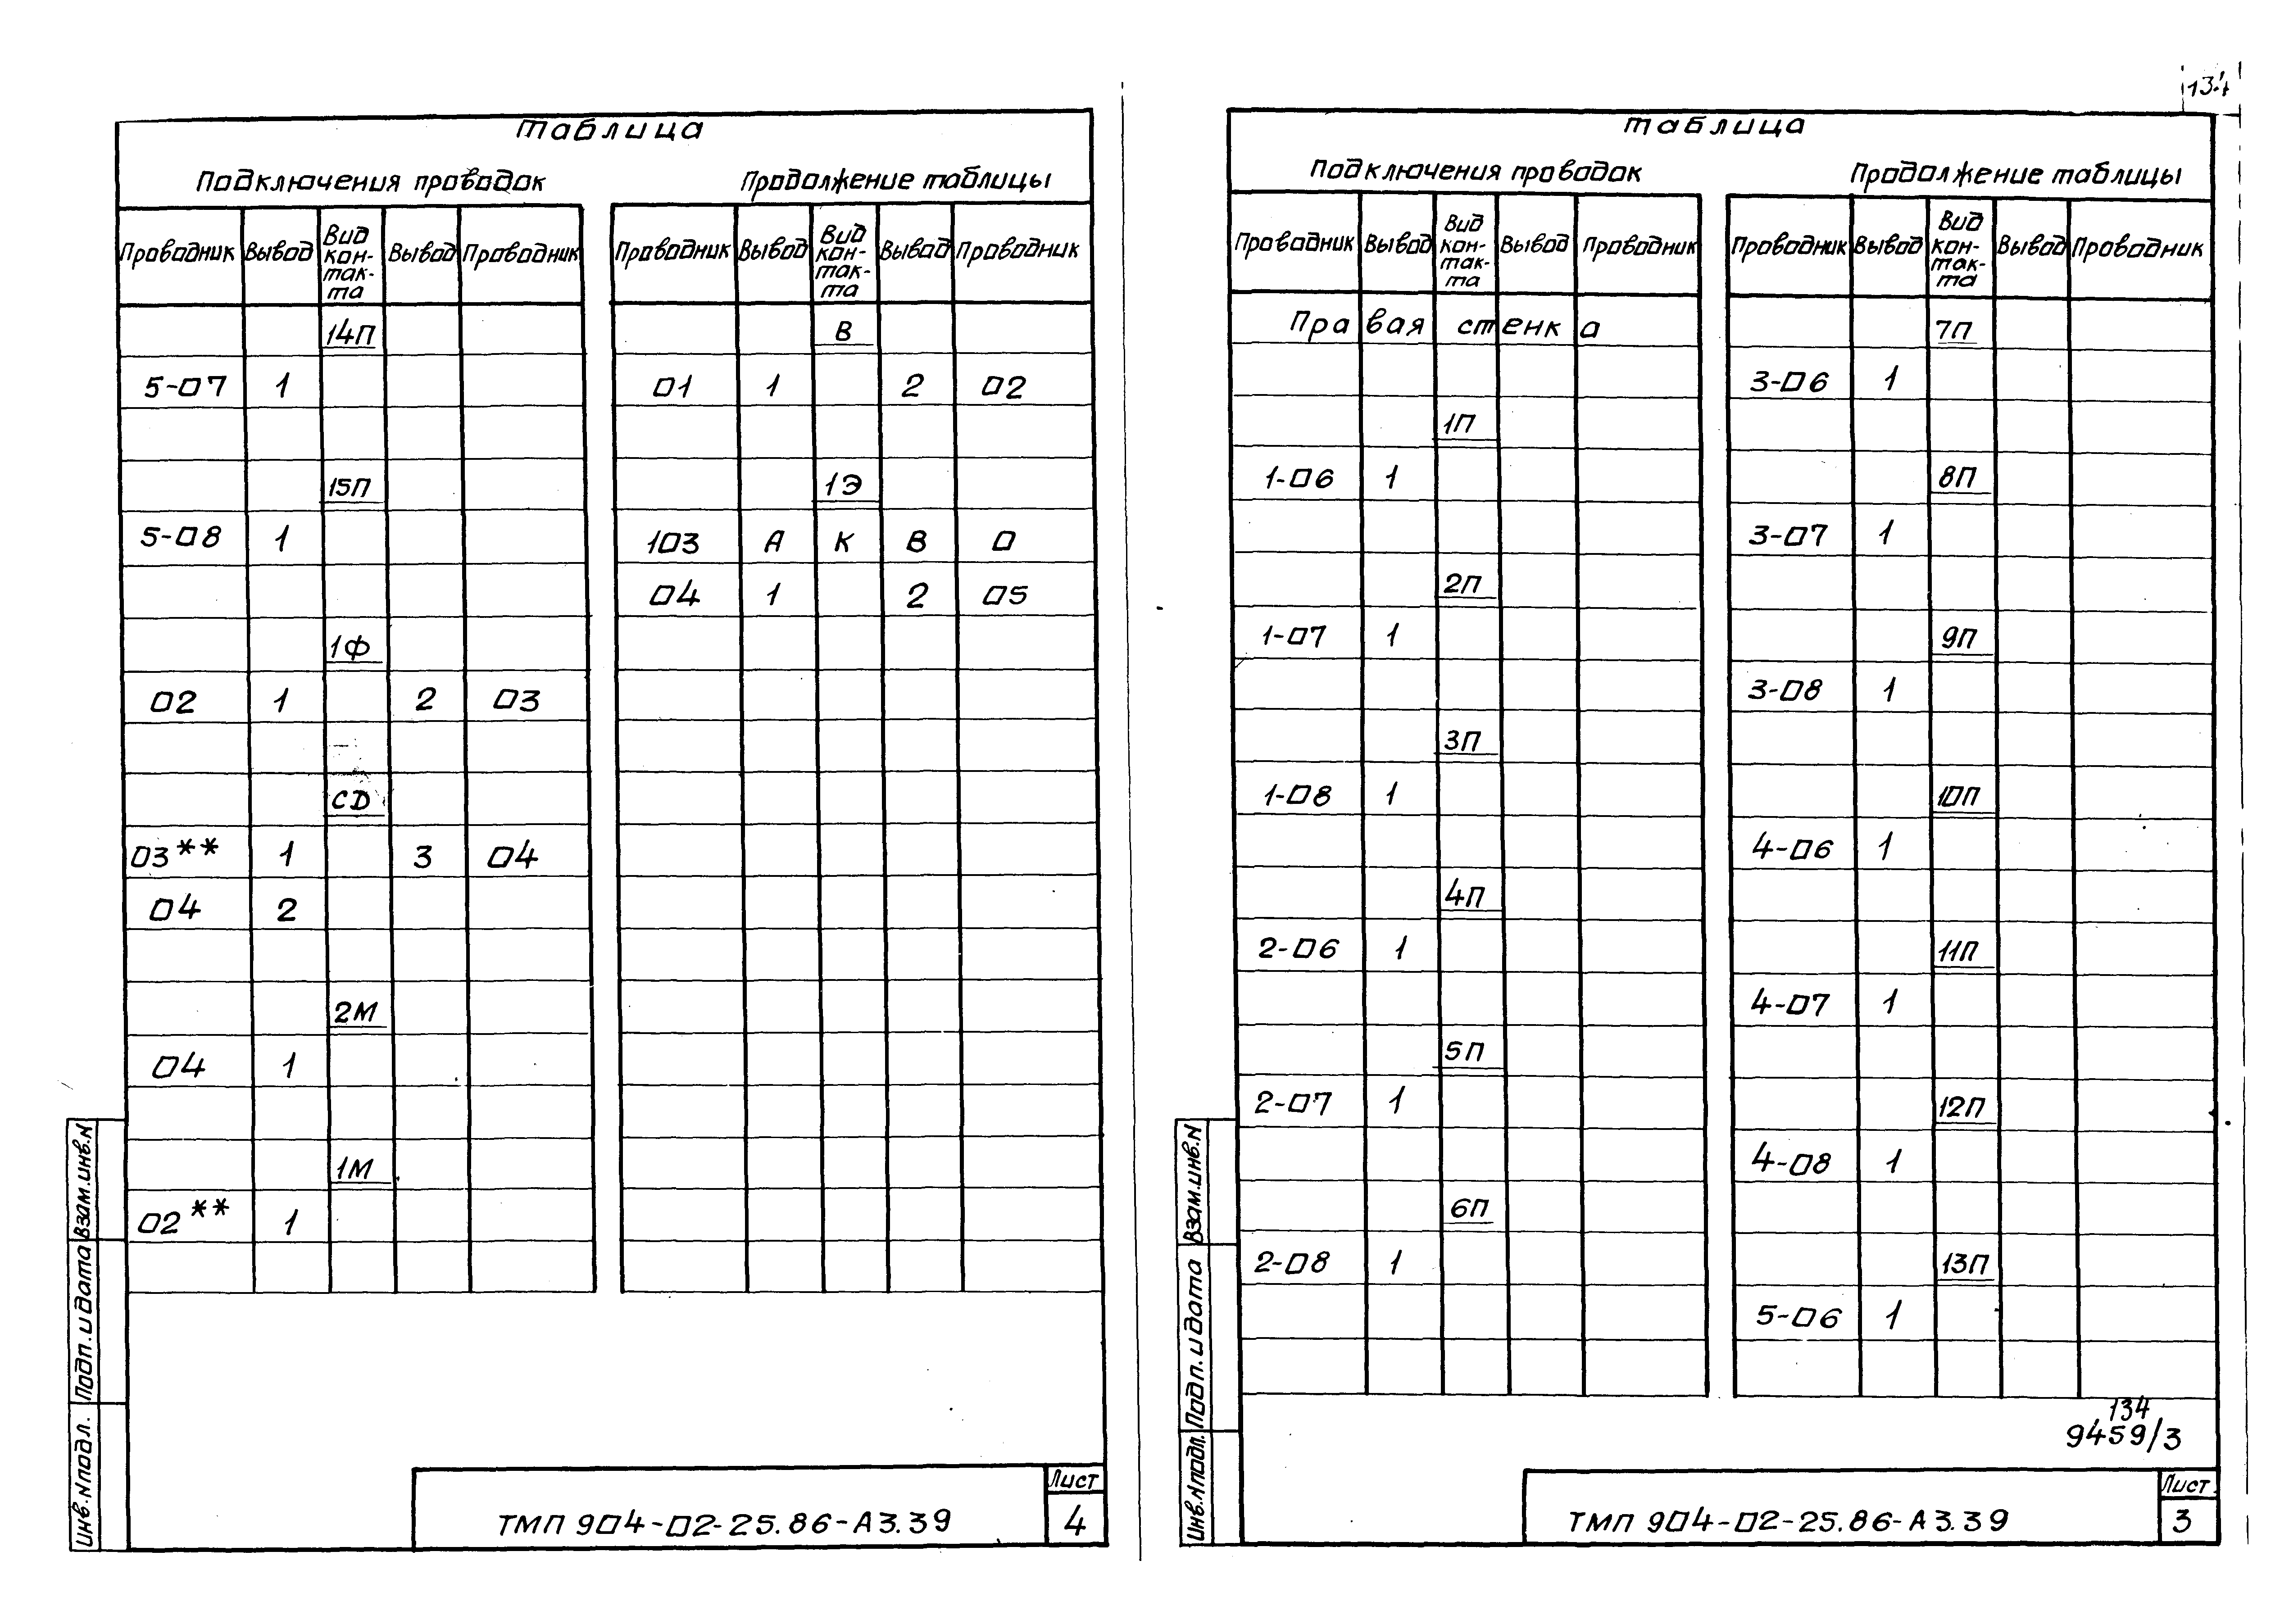 134
таблица
Подключения проводок
Продолжение таблицы
Проводник Вывод Вид кон-так-та Вывод Проводник
14П
5-07 1
15П
5-08 1
1Ф
02 1 2 03
СД
03** 1 3 04
04 2
2М
04 1
1М
02** 1
Проводник Вывод Вид кон-так-та Вывод Проводник
В
01 1 2 02
1Э
103 А К В 0
04 1 2 05
Взам.инв.N
Подп. и дата
Инв.N подл.
ТМП 904-02-25.86-А3.39
Лист
4
таблица
Подключения проводок
Продолжение таблицы
Проводник Вывод Вид кон-так-та Вывод Проводник
Правая стенка
1П
1-06 1
2П
1-07 1
3П
1-08 1
4П
2-06 1
5П
2-07 1
6П
2-08 1
Проводник Вывод Вид кон-так-та Вывод Проводник
7П
3-06 1
8П
3-07 1
9П
3-08 1
10П
4-06 1
11П
4-07 1
12П
4-08 1
13П
5-06 1
134
9459/3
Взам.инв.N
Подп. и дата
Инв.N подл.
ТМП 904-02-25.86-А3.39
Лист
3